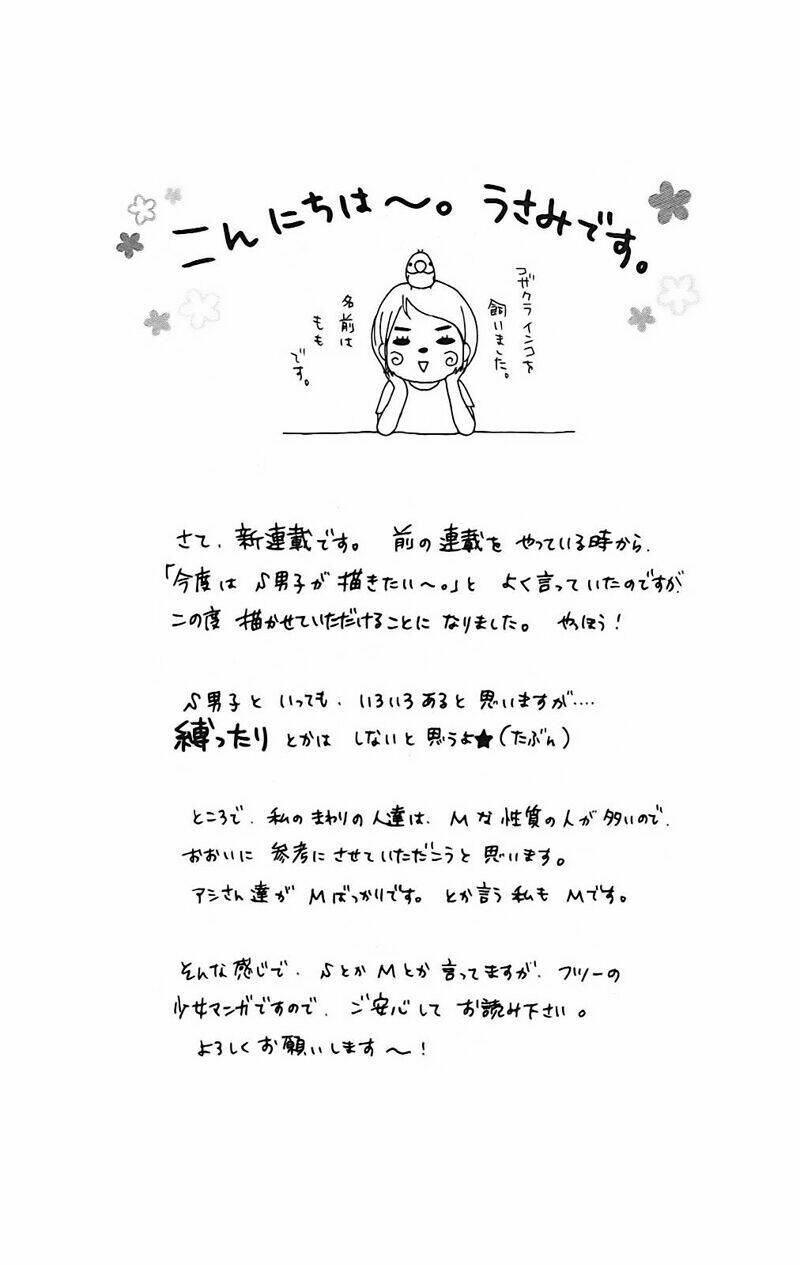 こんにちは〜。うさみです。
コザクラインコを
飼いました。
名前は
もも
です。
さて、新連載です。 前の連載を やっている時から、
「今度は S男子が 描きたい〜。」と よく言っていたのですが、
この度 描かせていただけることに なりました。 やっほう！
S男子と いっても、いろいろあると 思いますが‥‥
縛ったり とかは しないと 思うよ★(たぶん)
ところで、私のまわりの人達は、Mな性質の人が多いので、
おおいに 参考にさせていただこうと 思います。
アシさん達が Mばっかりです。 とか言う私も Mです。
そんな感じで、SとかMとか 言ってますが、フツーの
少女マンガですので、ご安心して お読み下さい。
よろしくお願いします〜！